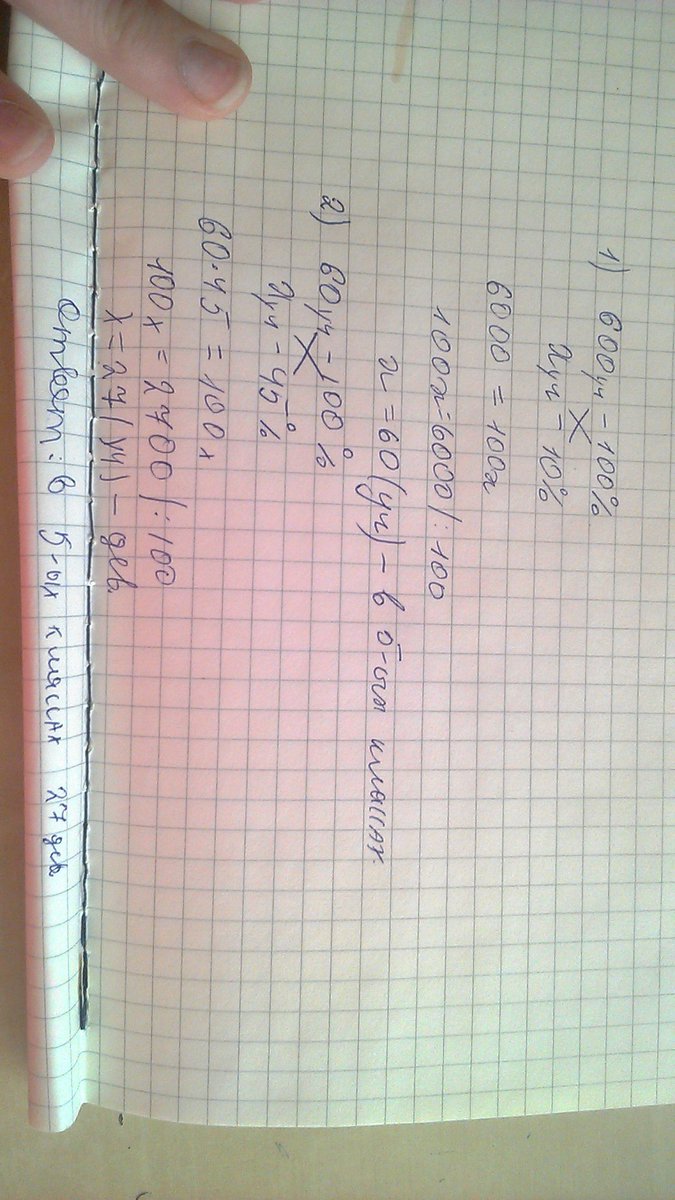 1) 600уч - 100%
xуч - 10%
6000 = 100x
100x = 6000 | : 100
x = 60 (уч) - в 5-ых классах
2) 60уч - 100%
xуч - 45%
60 · 45 = 100x
100x = 2700 | : 100
x = 27 (уч) - дев.
Ответ: в 5-ых классах 27 дев